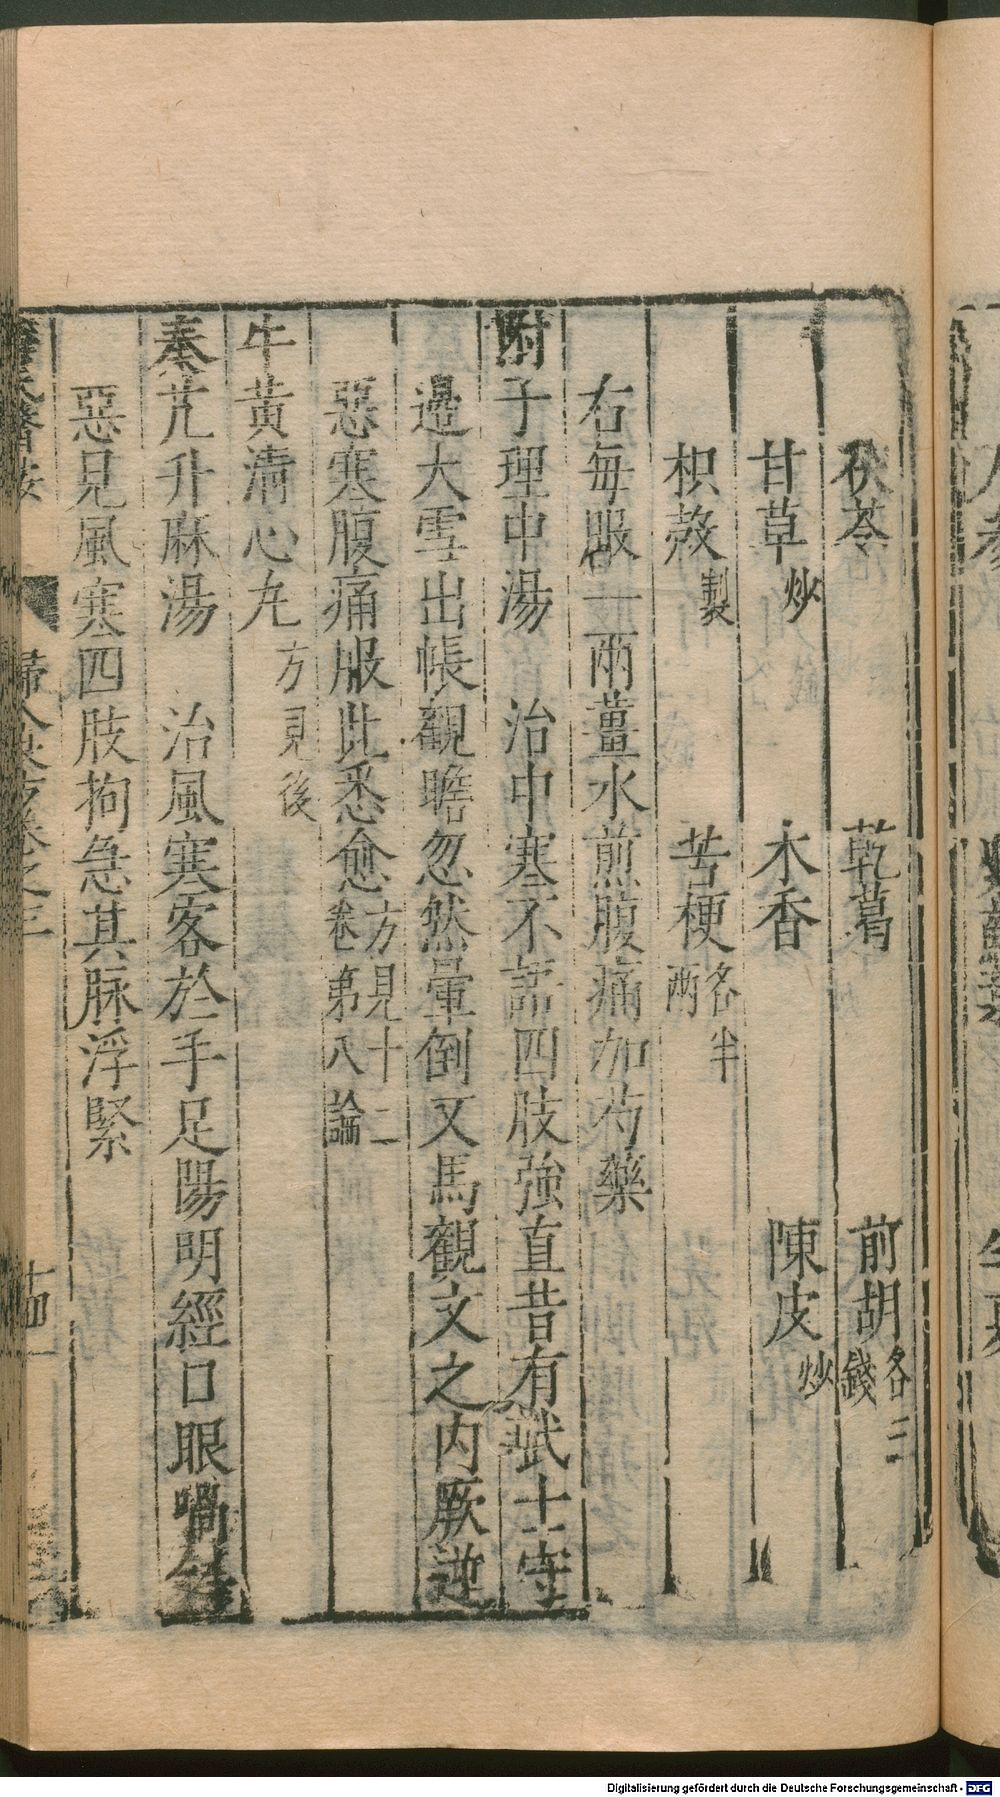 茯苓　乾葛　前胡各二錢
甘草炒　木香　陳皮炒
枳殼製　苦梗各半兩
右每服一兩薑水煎腹痛加芍藥
附子理中湯　治中寒不語四肢強直昔有武士守
邊大雪出帳觀瞻忽然暈倒又馬觀文之內厥逆
惡寒腹痛服此悉愈方見十二卷第八論
牛黃清心丸方見後
秦艽升麻湯　治風寒客於手足陽明經口眼喎斜
惡見風寒四肢拘急其脉浮緊
婦人良方卷之三　十四
Digitalisierung gefördert durch die Deutsche Forschungsgemeinschaft - DFG